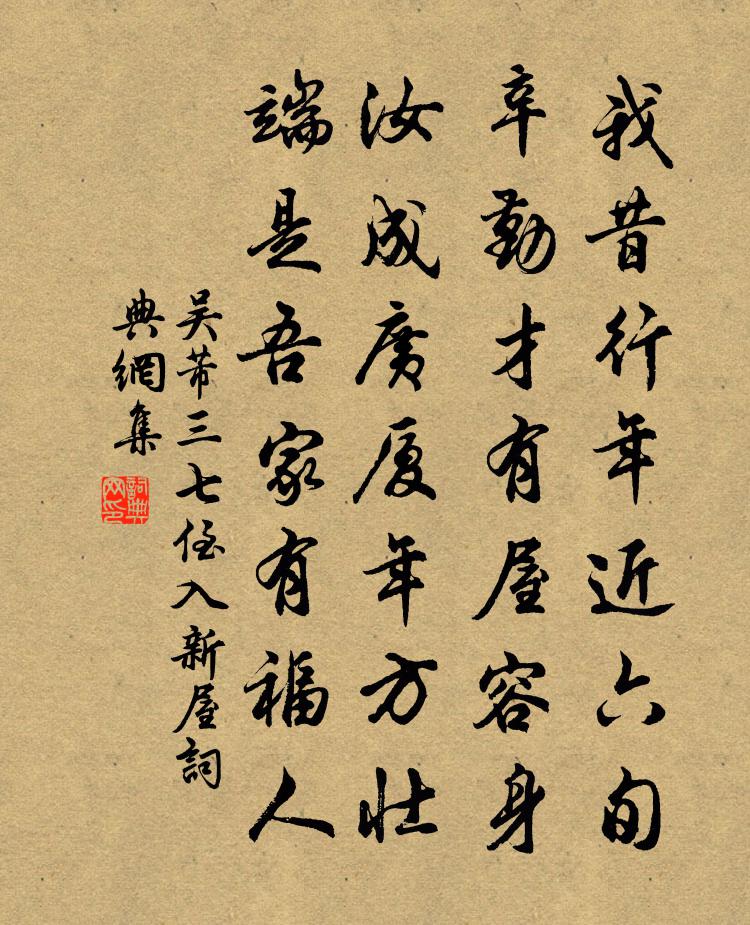 我昔行年近六旬
辛勤才有屋容身
汝成广厦年方壮
端是吾家有福人
吴芾三七侄入新屋詞
典網集
詞典网印